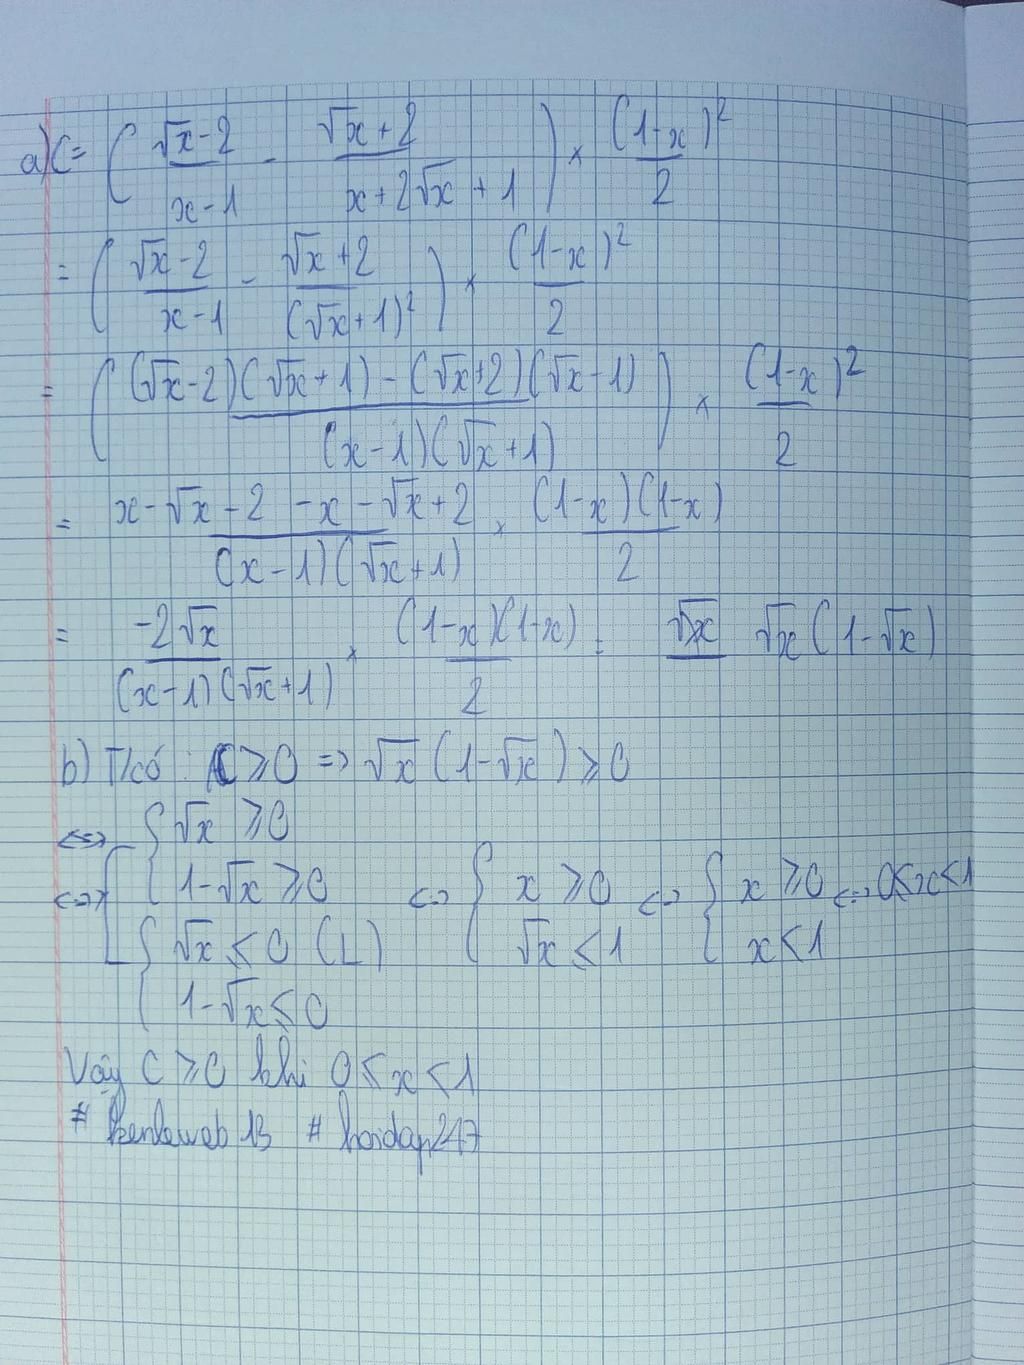 a) C = ( (√x - 2)/(x - 1) - (√x + 2)/(x + 2√x + 1) ) × (1-x)²/2
= ( (√x - 2)/(x - 1) - (√x + 2)/(√x + 1)² ) × (1-x)²/2
= ( ((√x - 2)(√x + 1) - (√x + 2)(√x - 1))/((x - 1)(√x + 1)) ) × (1-x)²/2
= (x - √x - 2 - x - √x + 2)/((x - 1)(√x + 1)) × (1-x)(1-x)/2
= (-2√x)/((x - 1)(√x + 1)) × (1-x)(1-x)/2 = √x(1 - √x)
b) T/có : C ≥ 0 => √x(1 - √x) ≥ 0
<=> [ { √x ≥ 0
<=> 1 - √x ≥ 0 <=> { x ≥ 0 <=> { x ≥ 0 <=> 0 ≤ x < 1
{ √x ≤ 0 (L) √x ≤ 1 x < 1
1 - √x ≤ 0
Vậy C ≥ 0 khi 0 ≤ x < 1
# 13 # hoidap247